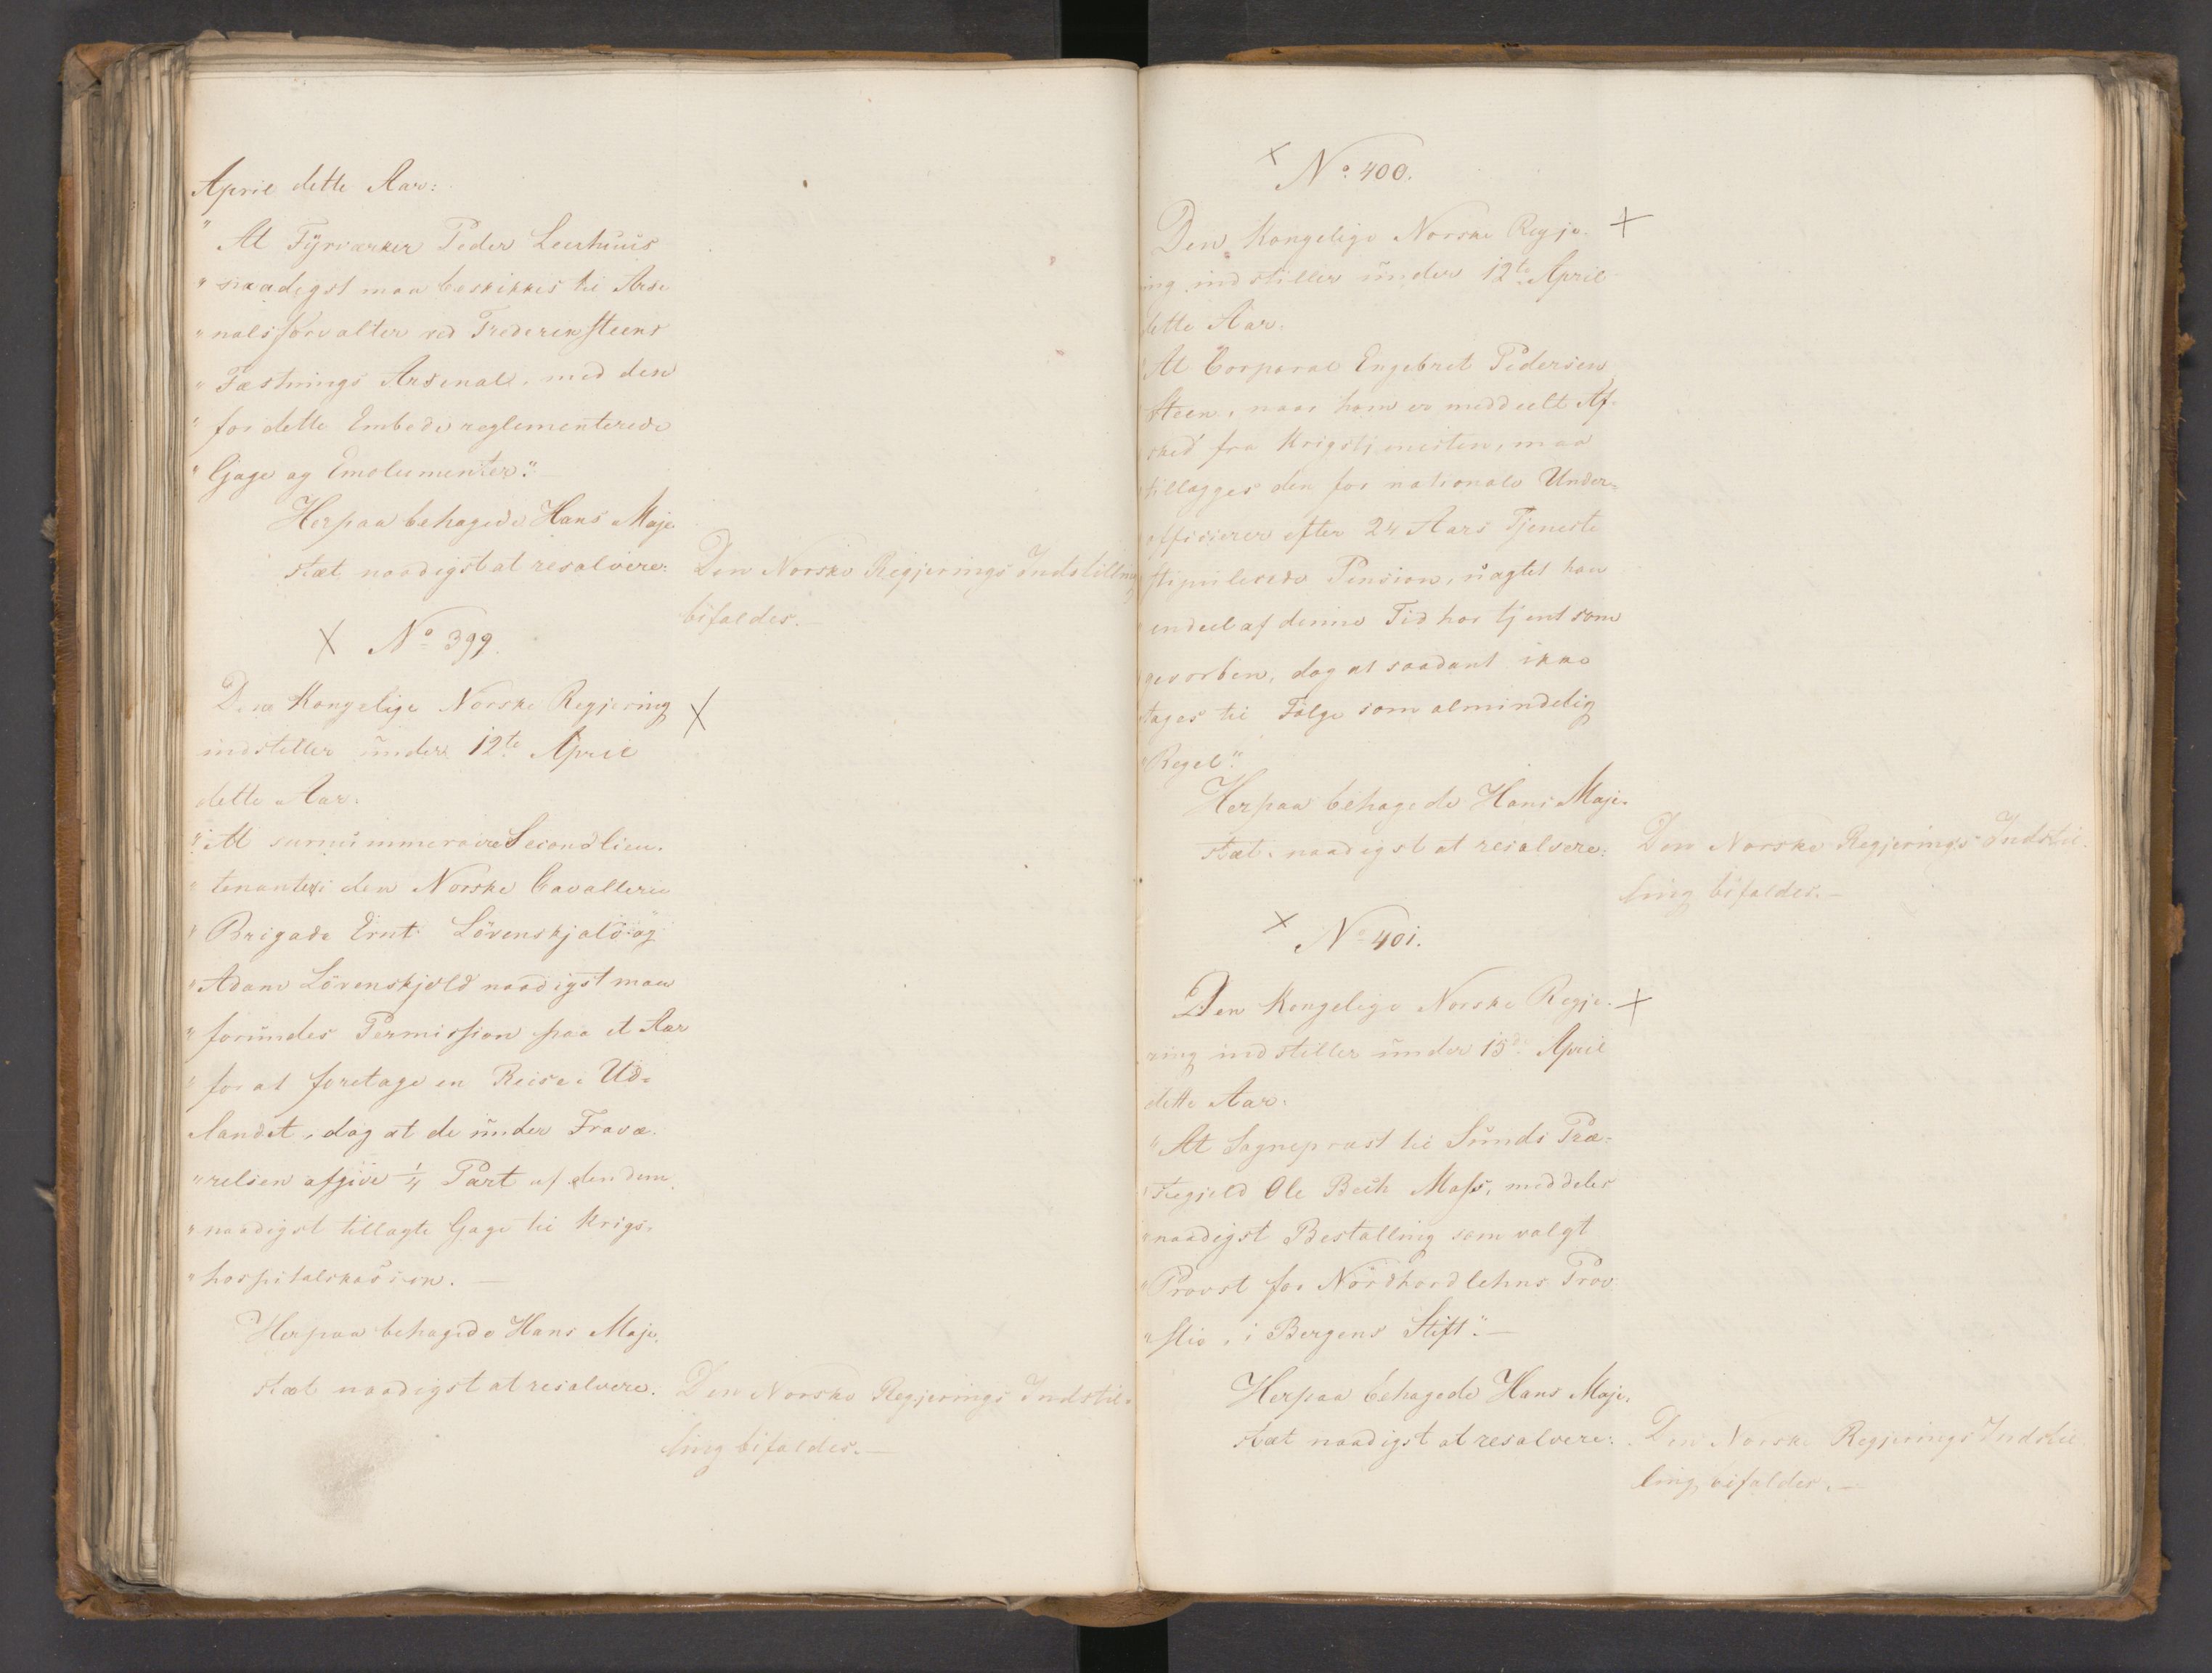 April dette Aar:
"At Fyrværker Peder Leuhuus
"naadigst maa beskikkes til Arse
"nalsforvalter ved Fredericksteens
"Fæstnings Arsenal, med den
"for dette Embede reglementerede
"Gage og Emolumenter."
Herpaa behagede Hans Maje
stæt naadigst at resolvere:
Den Norske Regjerings Indstilling
bifaldes.—
X No 399.
Den Kongelige Norske Regjering X
indstiller under 12te April
dette Aar:
"At surnummeraire Secondlieu-
"tenanter i den Norske Cavallerie
"Brigade Ernt Lövenskjold og
"Adam Lövenskjold naadigst maa
"forundes Permission paa et Aar
"for at foretage en Reise i Ud-
landet, dog at de under Fravæ-
"relsen afgive 1/4 Part af den dem
"naadigst tillagte Gage til Krigs-
"hospitalskassen.—
Herpaa behagede Hans Maje
stæt naadigst at resolvere.
Den Norske Regjerings Indstil-
ling bifaldes.—
X No 400.
Den Kongelige Norske Regje- X
ing indstiller under 12te April
dette Aar:
At Corporal Engebret Pedersen
Steen, naar ham er meddeelt Af-
sked fra Krigstjenesten, maa
tillægges den for nationale Under-
officierer efter 24 Aars Tjeneste
stipulerede Pension, uagtet han
endeel af denne Tid har tjent som
gevorben, dog at saadant ikke
tages til Fölge som almindelig
"Regel."
Herpaa behagede Hans Maje-
stæt naadigst at resolvere:
Den Norske Regjerings Indstil-
ling bifaldes.—
X No 401.
Den Kongelige Norske Regje- X
ring indstiller under 15de April
dette Aar:
"At Sogneprest til Sunds Præ-
"stegjeld Ole Beck Moss, meddeles
"naadigst Bestalling som valgt
"Provst for Nordhordlehns Prov
"stie, i Bergens Stift."—
Herpaa behagede Hans Maje-
stæt naadigst at resolvere:
Den Norske Regjerings Indstil
ling bifaldes.—